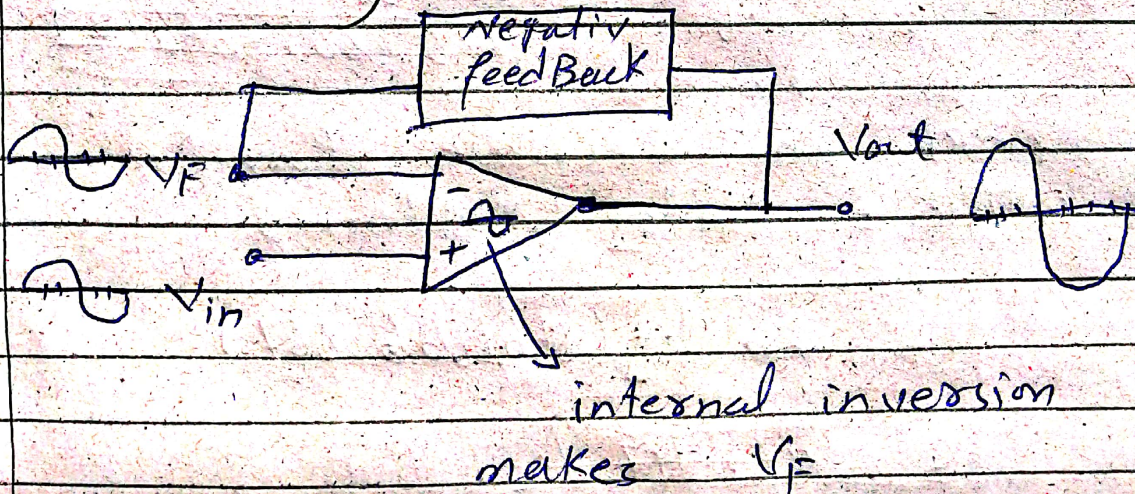 Negativ
feedBack
Vout
VF
-
+
Vin
internal inversion
makes VF